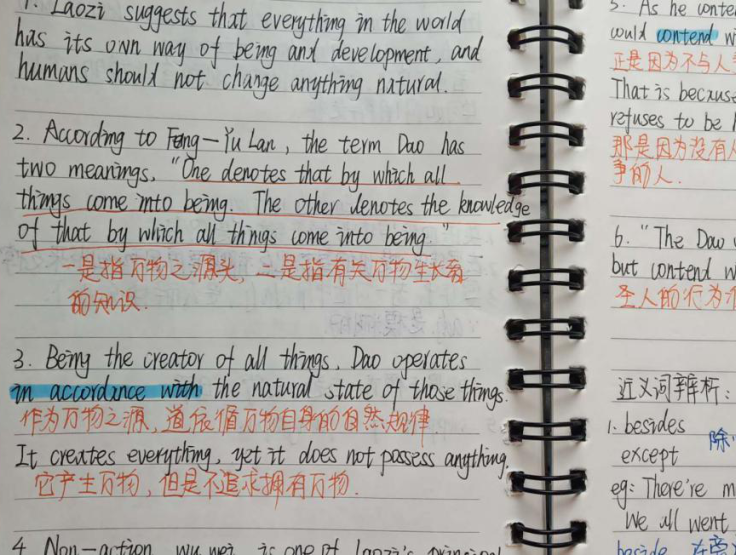 1. Laozi suggests that everything in the world
has its own way of being and development, and
humans should not change anything natural.
2. According to Fung-Yu Lan, the term Dao has
two meanings. "One denotes that by which all
things come into being. The other denotes the knowledge
of that by which all things come into being."
一是指万物之源头, 二是指有关万物生长有
的知识.
3. Being the creator of all things, Dao operates
in accordance with the natural state of those things.
作为万物之源, 道依循万物自身的自然规律
It creates everything, yet it does not possess anything.
它产生万物, 但是不追求拥有万物.
4. Non-action, wu wei, is one of Laozi's principal
5. As he conte
would contend w
正是因为不与人
That is because
refuses to be
那是因为没有人
争的人.
6. "The Dao
but contend w
圣人的行为
近义词辨析:
1. besides 除
except
eg: There're m
We all went
beside